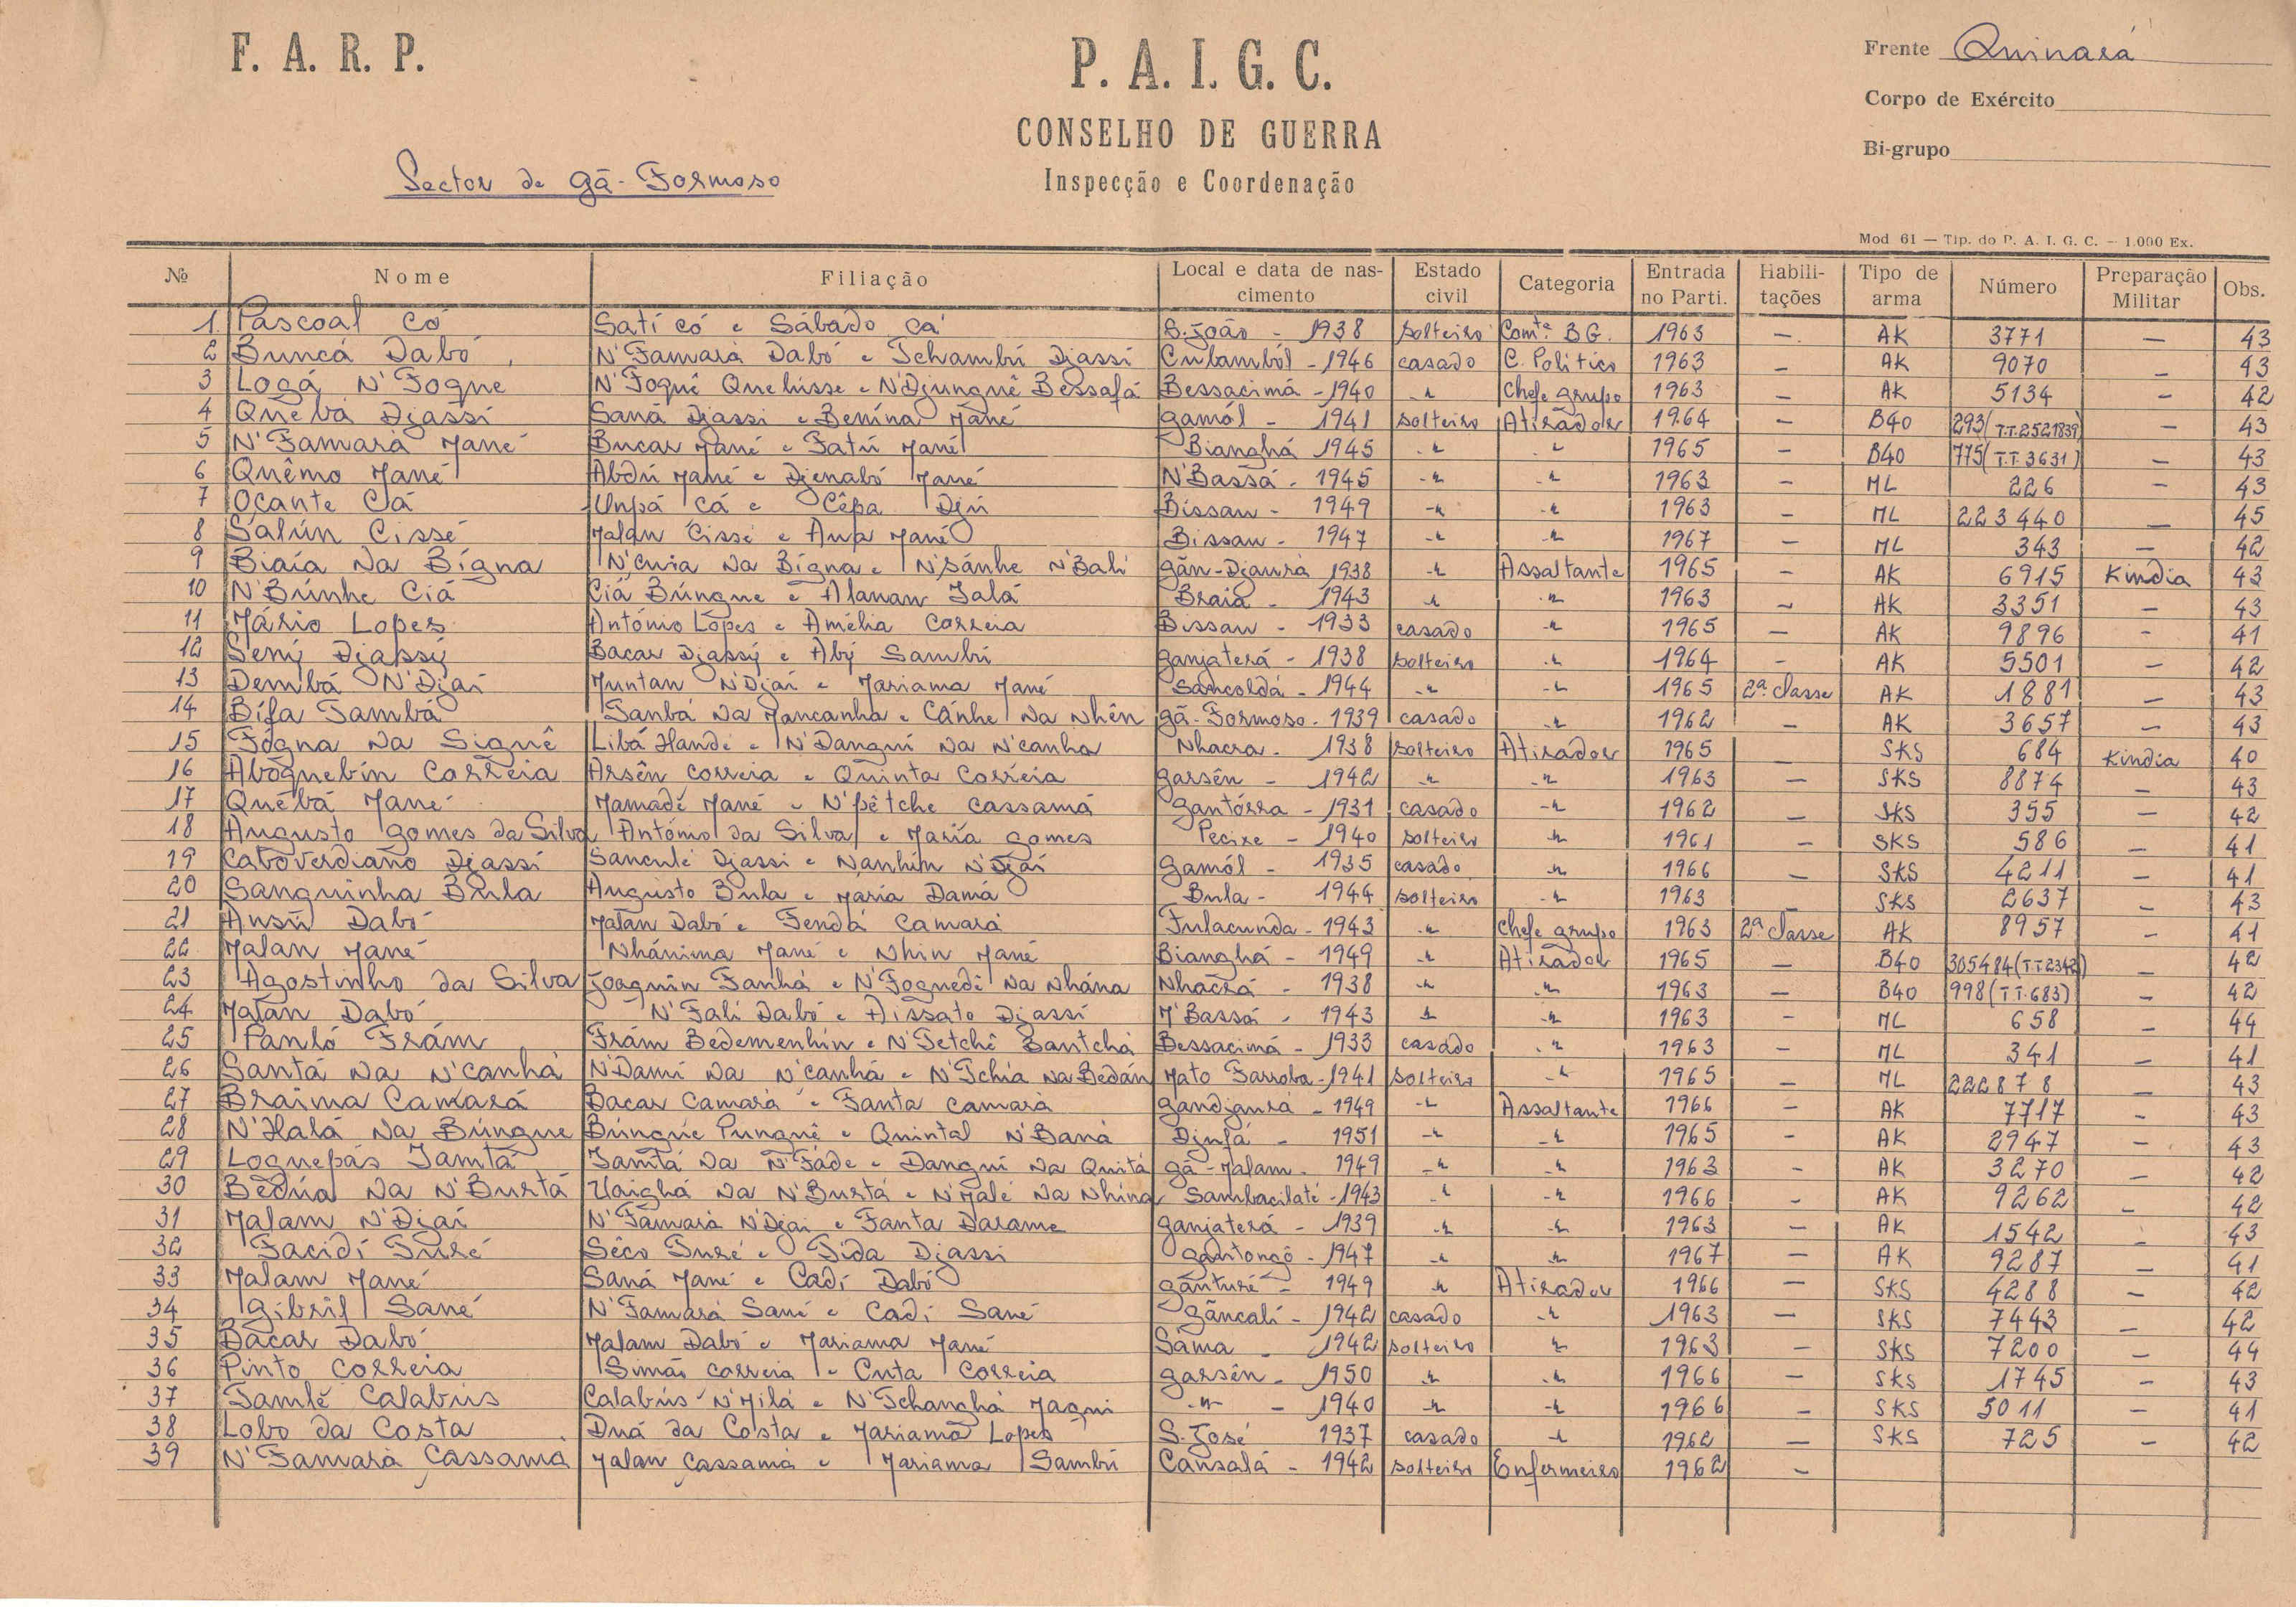 F. A. R. P.
P. A. I. G. C.
CONSELHO DE GUERRA
Inspecção e Coordenação
Frente Quinará
Corpo de Exército
Bi-grupo
Sector de Gã-Formoso
Mod 61 — Tip. do P. A. I. G. C. — 1.000 Ex.
Nº Nome Filiação Local e data de nascimento Estado civil Categoria Entrada no Parti. Habilitações Tipo de arma Número Preparação Militar Obs.
1 Pascoal Có Satí Có e Sábado Cá S. João - 1938 solteiro Comte. BG. 1963 — AK 3771 — 43
2 Buncá Dabó N'Famará Dabó e Tchambú Djassí Culamból - 1946 casado C. Politico 1963 — AK 9070 — 43
3 Logá N'Fogne N'Foquê Quelússe e N'Djunguê Bessafá Bessacimá - 1940 -"- Chefe grupo 1963 — AK 5134 — 42
4 Quebá Djassí Saná Djassi e Benína Mané Gamól - 1941 solteiro Atirador 1964 — B40 293(T.T.2521839) — 43
5 N'Famará Mané Bucar Mané e Fatú Mané Bianghá 1945 -"- -"- 1965 — B40 775(T.T 3631) — 43
6 Quêmo Mané Abdú Mané e Djenabó Mané N'Bassá - 1945 -"- -"- 1963 — ML 226 — 43
7 Ocante Cá Unpá Cá e Cêpa Djú Bissau - 1949 -"- -"- 1963 — ML 223440 — 45
8 Salún Cissé Malan Cissé e Ana Mané Bissau - 1947 -"- -"- 1967 — ML 343 — 42
9 Biaía Na Bígna N'Cuia Na Bígna e N'Sánhe N'Balí Gãn-Djaurá 1938 -"- Assaltante 1965 — AK 6915 Kindia 43
10 N'Búnhe Ciá Ciá Búngue e Alanan Ialá Braia - 1943 -"- -"- 1963 — AK 3351 — 43
11 Mário Lopes António Lopes e Amélia Correia Bissau - 1933 casado -"- 1965 — AK 9896 — 41
12 Seny Djassy Bacar Djassy e Aby Sambú Ganjaterá - 1938 solteiro -"- 1964 — AK 5501 — 42
13 Dembá N'Djaí Muntan N'Djaí e Mariama Mané Sancoldá - 1944 -"- -"- 1965 2ª. classe AK 1881 — 43
14 Bífa Tambá Tanbá Na Mancanha e Cánhe Na Nhên Gã-Formoso - 1939 casado -"- 1962 — AK 3657 — 43
15 Fogna Na Siguê Libá Handé e N'Danguí Na N'canha Nhacra - 1938 solteiro Atirador 1965 — SKS 684 Kindia 40
16 Aboguebín Correia Arsên Correia e Quinta Correia Garsên - 1942 -"- -"- 1963 — SKS 8874 — 43
17 Quebá Mané Mamadí Mané e N'pêtche Cassamá Gantórra - 1931 casado -"- 1962 — SKS 355 — 42
18 Augusto Gomes da Silva António da Silva e María Gomes Pecixe - 1940 solteiro -"- 1961 — SKS 586 — 41
19 Caboverdiano Djassí Sanculé Djassi e Nanhin N'Djaí Gamól - 1935 casado -"- 1966 — SKS 4211 — 41
20 Sanguinha Bula Augusto Bula e María Damá Bula - 1944 solteiro -"- 1963 — SKS 2637 — 43
21 Ansú Dabó Malan Dabó e Fendá Camará Fulacunda - 1943 -"- Chefe grupo 1963 2ª classe AK 8957 — 41
22 Malan Mané Nhánima Mané e Nhin Mané Bianghá - 1949 -"- Atirador 1965 — B40 305484(T.T2342) — 42
23 Agostinho da Silva Joaquin Fanhá e N'Foguedí Na Nhána Nhacrá - 1938 -"- -"- 1963 — B40 998(T.T.683) — 42
24 Malan Dabó N'Falí Dabó e Aissato Djassí M'Bassá - 1943 -"- -"- 1963 — ML 658 — 44
25 Panló Frám Frám Bedemenhín e N'Tetchê Bantchá Bessacimá - 1933 casado -"- 1963 — ML 341 — 41
26 Santá Na N'canhá N'Damí Na N'canhá e N'Tchía Na Bedán Mato Farroba - 1941 solteiro -"- 1965 — ML 222878 — 43
27 Braima Camará Bacar Camará e Fanta Camará Gandjaurá - 1949 -"- Assaltante 1966 — AK 7717 — 43
28 N'Halá Na Búngue Búngue Punguê e Quintal N'Baná Djufá - 1951 -"- -"- 1965 — AK 2947 — 43
29 Loguepás Iamtá Iamtá Na N'Fáde e Danguí Na Quitá Gã-Malam - 1949 -"- -"- 1963 — AK 3270 — 42
30 Bedúa Na N'Burtá Uaighá Na N'Burtá e N'Malé Na Nhína Sambacilaté - 1943 -"- -"- 1966 — AK 9262 — 42
31 Malam N'Djaí N'Famará N'Djai e Fanta Darame Ganjaterá - 1939 -"- -"- 1963 — AK 1542 — 43
32 Facidí Turé Sêco Turé e Fida Djassi Gantongô - 1947 -"- -"- 1967 — AK 9287 — 41
33 Malam Mané Saná Mané e Cadí Dabó Gãnturé - 1949 -"- Atirador 1966 — SKS 4288 — 42
34 Gibríl Sané N'Famará Sané e Cadí Sané Gãncalí - 1942 casado -"- 1963 — SKS 7443 — 42
35 Bacar Dabó Malam Dabó e Mariama Mané Sáma - 1942 solteiro -"- 1963 — SKS 7200 — 44
36 Pinto Correia Simão Correia e Cuta Correia Garsên - 1950 -"- -"- 1966 — SKS 1745 — 43
37 Tamlé Calabús Calabús N'Milá e N'Tchanghá Maqui -"- - 1940 -"- -"- 1966 — SKS 5011 — 41
38 Lobo da Costa Duá da Costa e Mariama Lopes S. José 1937 casado -"- 1962 — SKS 725 — 42
39 N'Famará Cassamá Malan Cassamá e Mariama Sambú Cansalá - 1942 solteiro Enfermeiro 1962 —